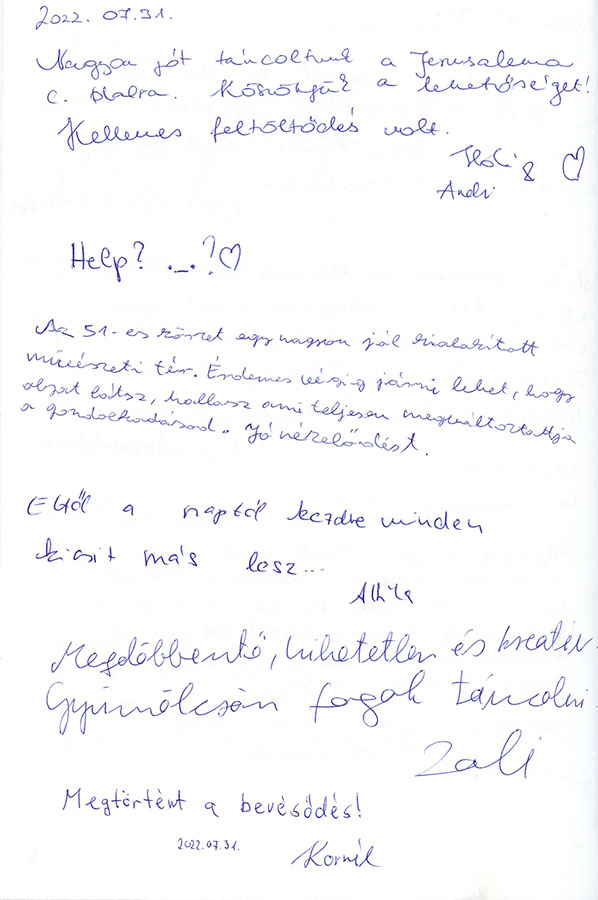 2022. 07.31.
Nagyon jót táncoltunk a Jerusalema
c. dalra. Köszönjük a lehetőséget!
Kellemes feltöltődés volt.
&
Andi
Help? ._.?♡
Az 51-es körzet egy nagyon jól kialakított
művészeti tér. Érdemes végig járni, lehet, hogy
olyat látsz, hallasz ami teljesen megváltoztattja
a gondolkodásod. Jó nézelődést.
Ettől a naptól kezdve minden
kicsit más lesz...
Attila
Megdöbbentő, hihetetlen és kreatív.
Gyümölcsön fogok táncolni
Zali
Megtörtént a bevésődés!
2022.07.31.
Kornél